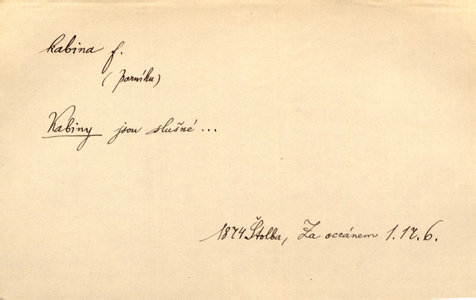 kabina f.
(parníku)
Kabiny jsou slušné...
1874 Štolba, Za oceánem 1.176.